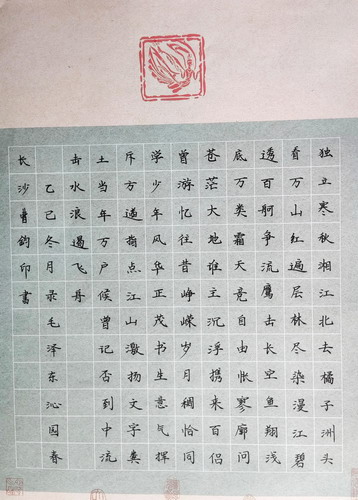 独立寒秋湘江北去橘子洲头
看万山红遍层林尽染漫江碧
透百舸争流鹰击长空鱼翔浅
底万类霜天竞自由怅寥廓问
苍茫大地谁主沉浮携来百侣
曾游忆往昔峥嵘岁月稠恰同
学少年风华正茂书生意气挥
斥方遒指点江山激扬文字粪
土当年万户侯曾记否到中流
击水浪遏飞舟
乙己冬月录毛泽东沁园春
长沙 钧印书